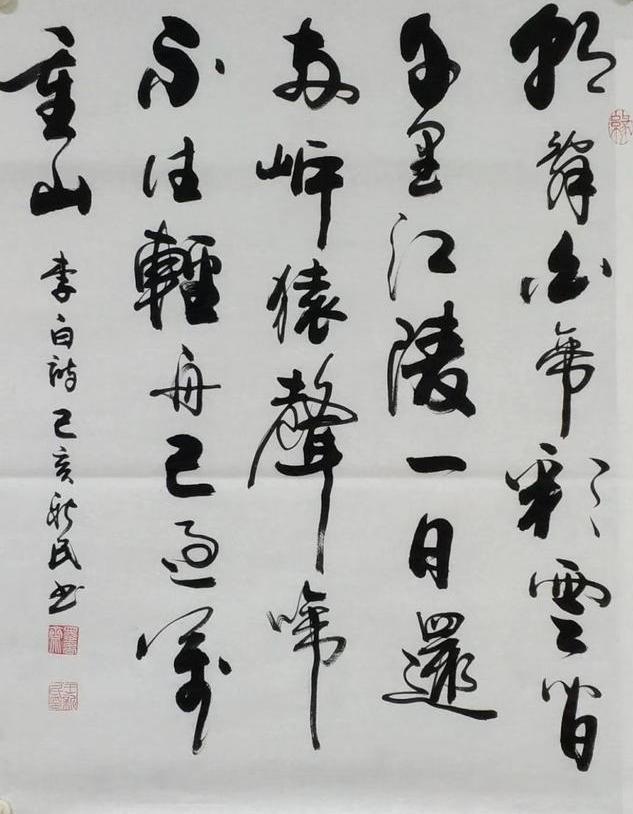 朝辭白帝彩雲間
千里江陵一日還
兩岸猿聲啼
不住輕舟已過萬
重山
李白詩己亥新民書